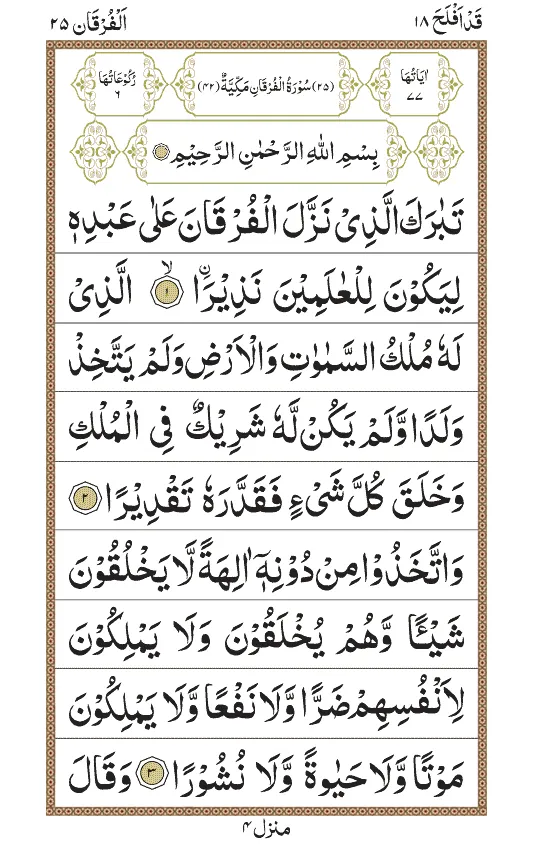 قَدْ اَفْلَحَ ۱۸
اَلْفُرْقَان ۲۵
اٰيَاتُهَا ۷۷
(۲۵) سُوْرَةُ الْفُرْقَانِ مَكِّيَّةٌ (۴۲)
رُكُوْعَاتُهَا ۶
بِسْمِ اللّٰهِ الرَّحْمٰنِ الرَّحِيْمِ
تَبٰرَكَ الَّذِىْ نَزَّلَ الْفُرْقَانَ عَلٰى عَبْدِهٖ
لِيَكُوْنَ لِلْعٰلَمِيْنَ نَذِيْرَاۨ ۙ‏﴿۱﴾ الَّذِىْ
لَهٗ مُلْكُ السَّمٰوٰتِ وَالْاَرْضِ وَلَمْ يَتَّخِذْ
وَلَدًا وَّلَمْ يَكُنْ لَّهٗ شَرِيْكٌ فِى الْمُلْكِ
وَخَلَقَ كُلَّ شَىْءٍ فَقَدَّرَهٗ تَقْدِيْرًا ﴿۲﴾
وَاتَّخَذُوْا مِنْ دُوْنِهٖۤ اٰلِهَةً لَّا يَخْلُقُوْنَ
شَيْـًٔا وَّهُمْ يُخْلَقُوْنَ وَلَا يَمْلِكُوْنَ
لِاَنْفُسِهِمْ ضَرًّا وَّلَا نَفْعًا وَّلَا يَمْلِكُوْنَ
مَوْتًا وَّلَا حَيٰوةً وَّلَا نُشُوْرًا ﴿۳﴾ وَقَالَ
منزل ۴